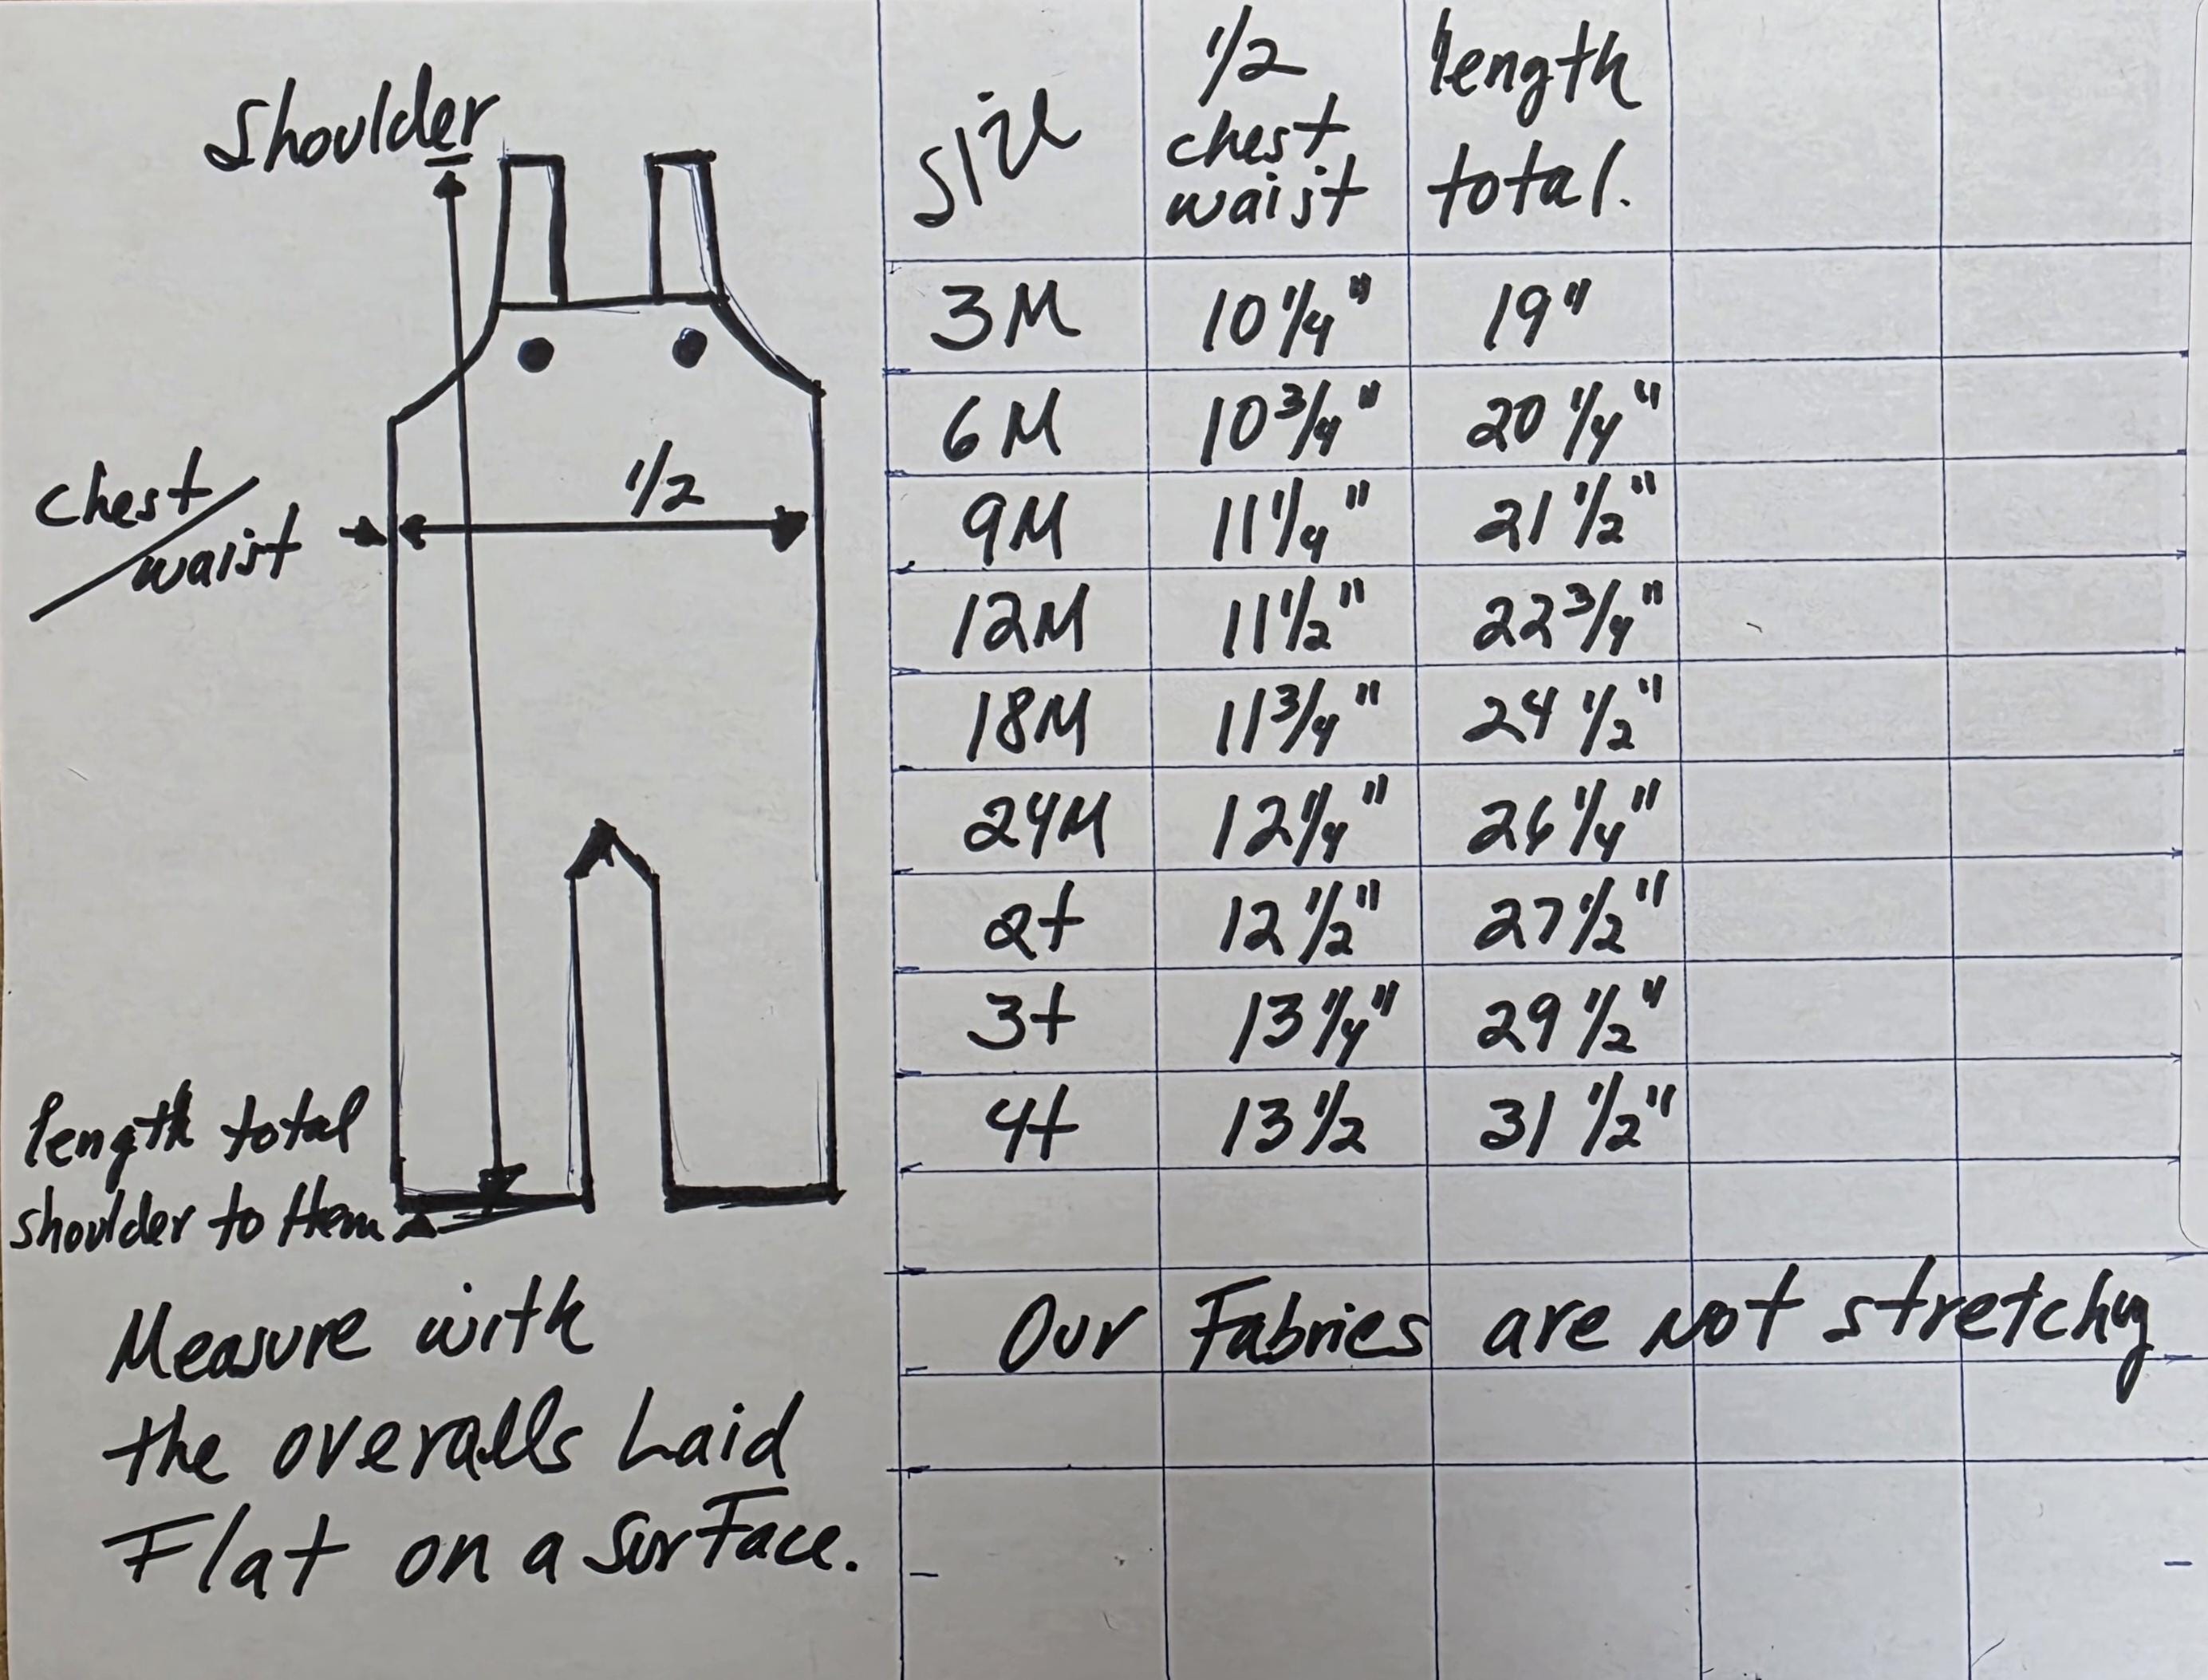 Shoulder
chest/
waist
1/2
length total
shoulder to Hem
Measure with
the overalls Laid
Flat on a surface.
Size 1/2 chest waist length total.
3M 10 1/4" 19"
6M 10 3/4" 20 1/4"
9M 11 1/4" 21 1/2"
12M 11 1/2" 22 3/4"
18M 11 3/4" 24 1/2"
24M 12 1/4" 26 1/4"
2t 12 1/2" 27 1/2"
3t 13 1/4" 29 1/2"
4t 13 1/2 31 1/2"
Our Fabrics are not stretchy